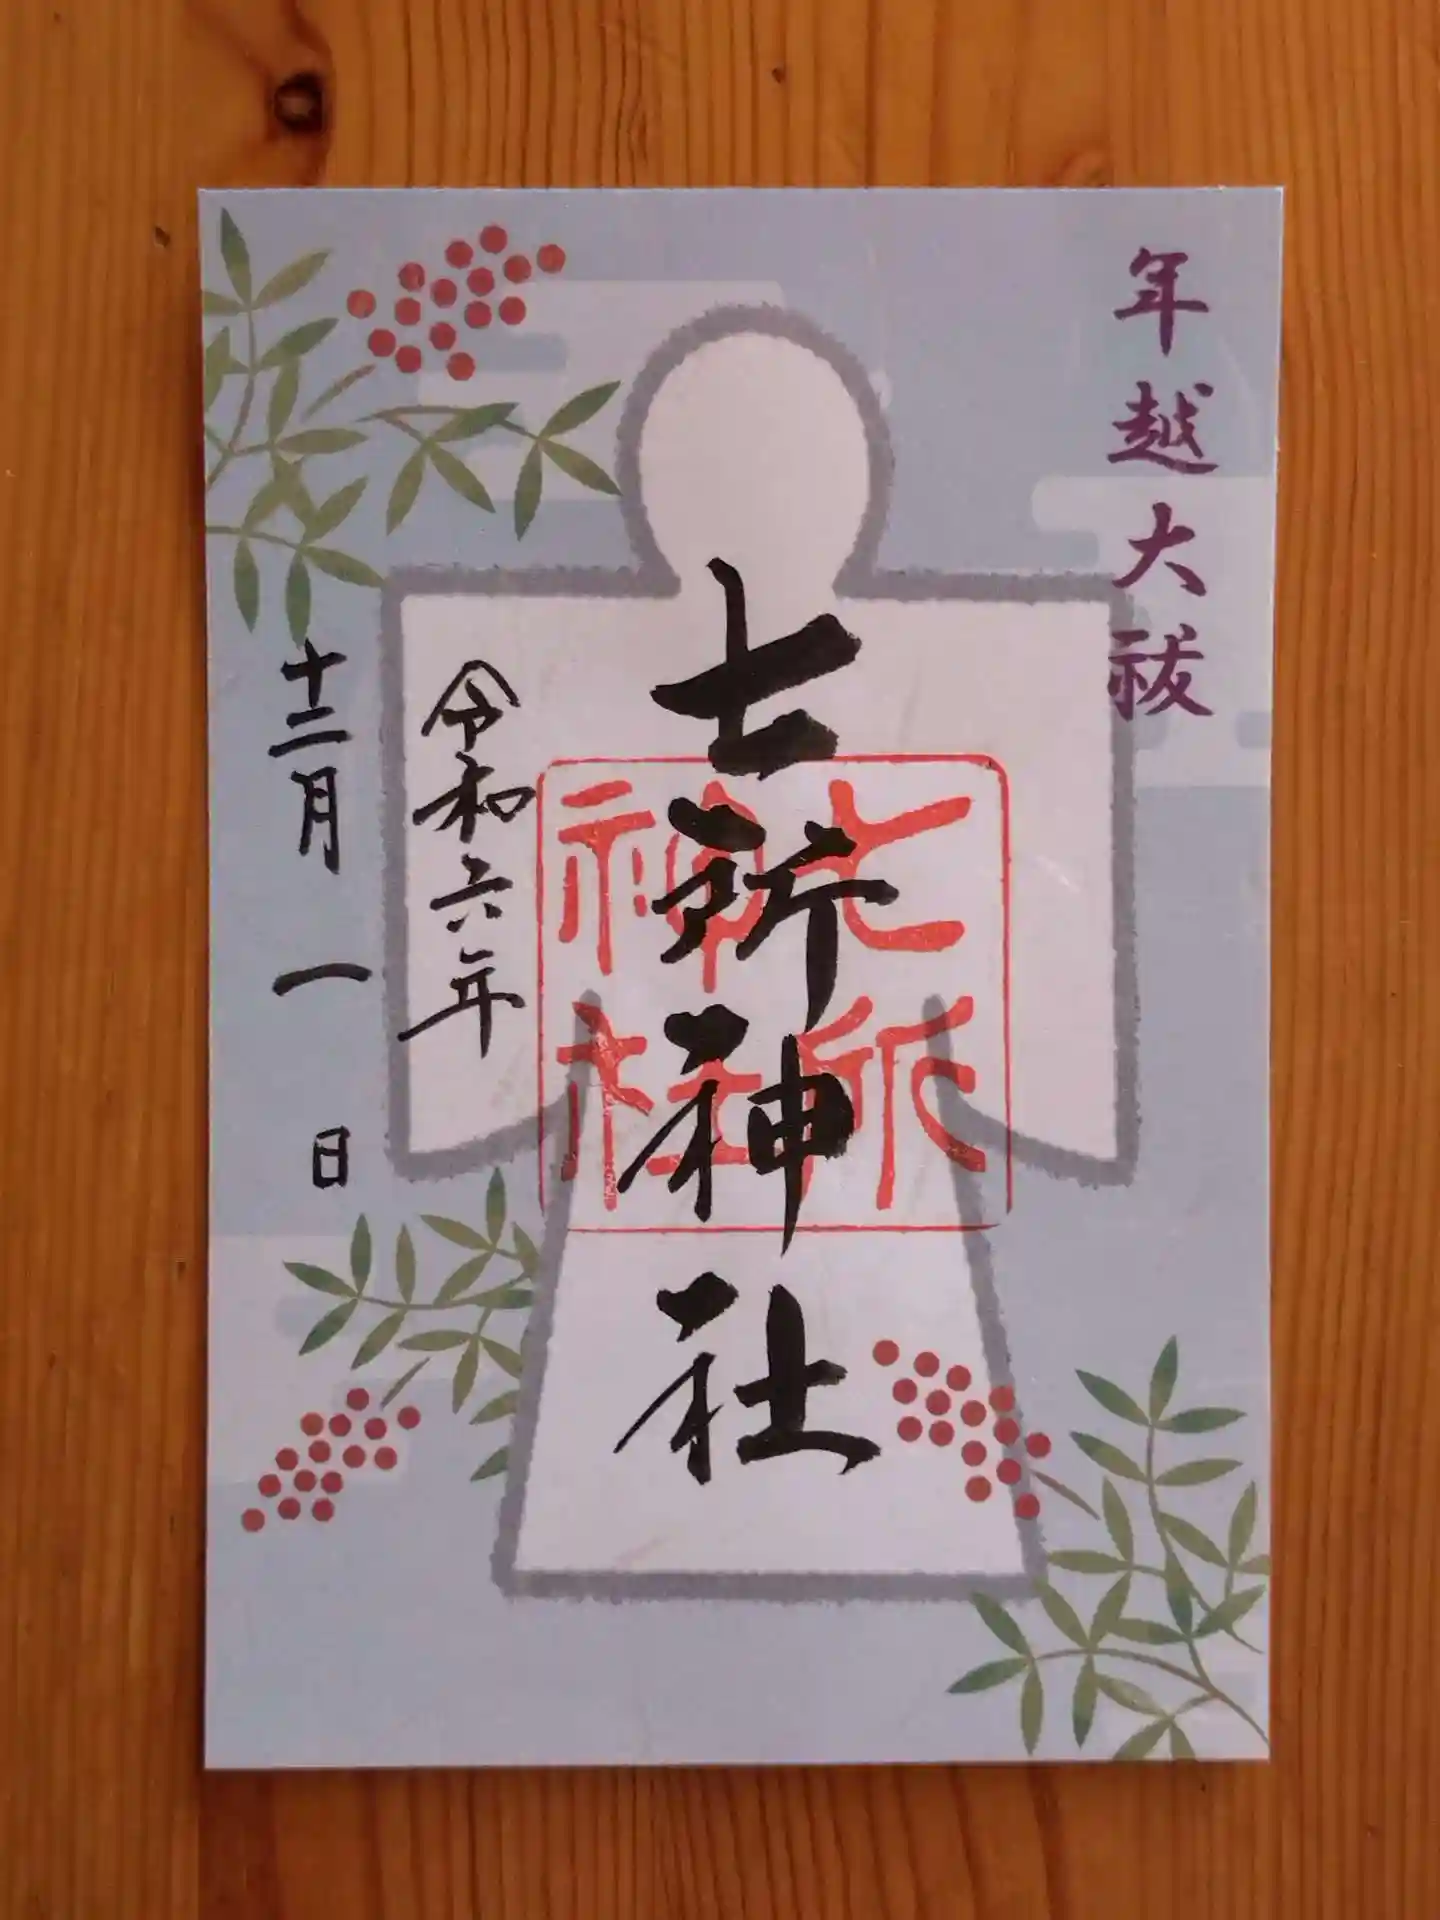 年越大祓
七所神社
七所
神社
令和六年
十二月一日